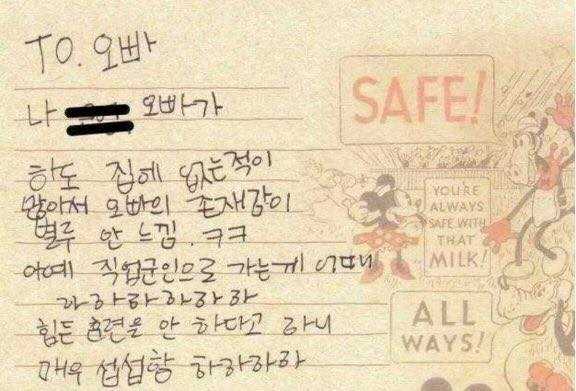 TO. 오빠
나 오빠가
하도 집에 없는적이
많아서 오빠의 존재감이
별루 안 느낌. ㅋㅋ
아예 직업군인으로 가는게 어떠니
하하하하하하
힘든 훈련을 안 하다고 하니
매우 섭섭향 하하하하
SAFE!
YOU'RE
ALWAYS
SAFE WITH
THAT
MILK!
ALL
WAYS!